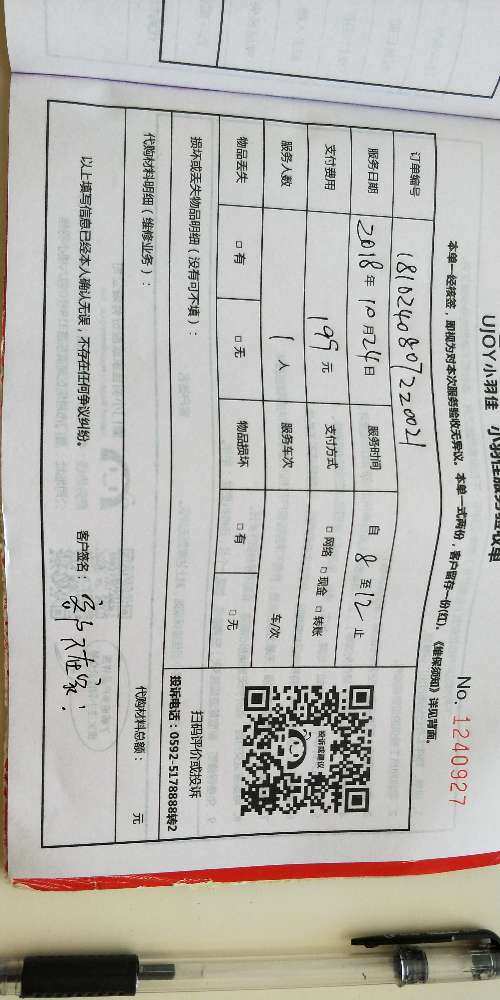 UJOY小羽佳 小羽佳服务验收单
No. 1240927
本单一经核签，即视为对本次服务验收无异议。本单一式两份，客户留存一份(红)。《维保须知》详见背面。
订单编号 1810240807220021
服务日期 2018年10月24日 服务时间 自8至12止
支付费用 199元 支付方式 □网络 □现金 □转账
服务人数 1人 服务车次 车/次
物品丢失 □有 □无 物品损坏 □有 □无
损坏或丢失物品明细（没有可不填）：
投诉或建议
扫码评价或投诉
投诉电话：0592-5178888转2
代购材料明细（维修业务）： 代购材料总额： 元
以上填写信息已经本人确认无误，不存在任何争议纠纷。 客户签名：客户不在家